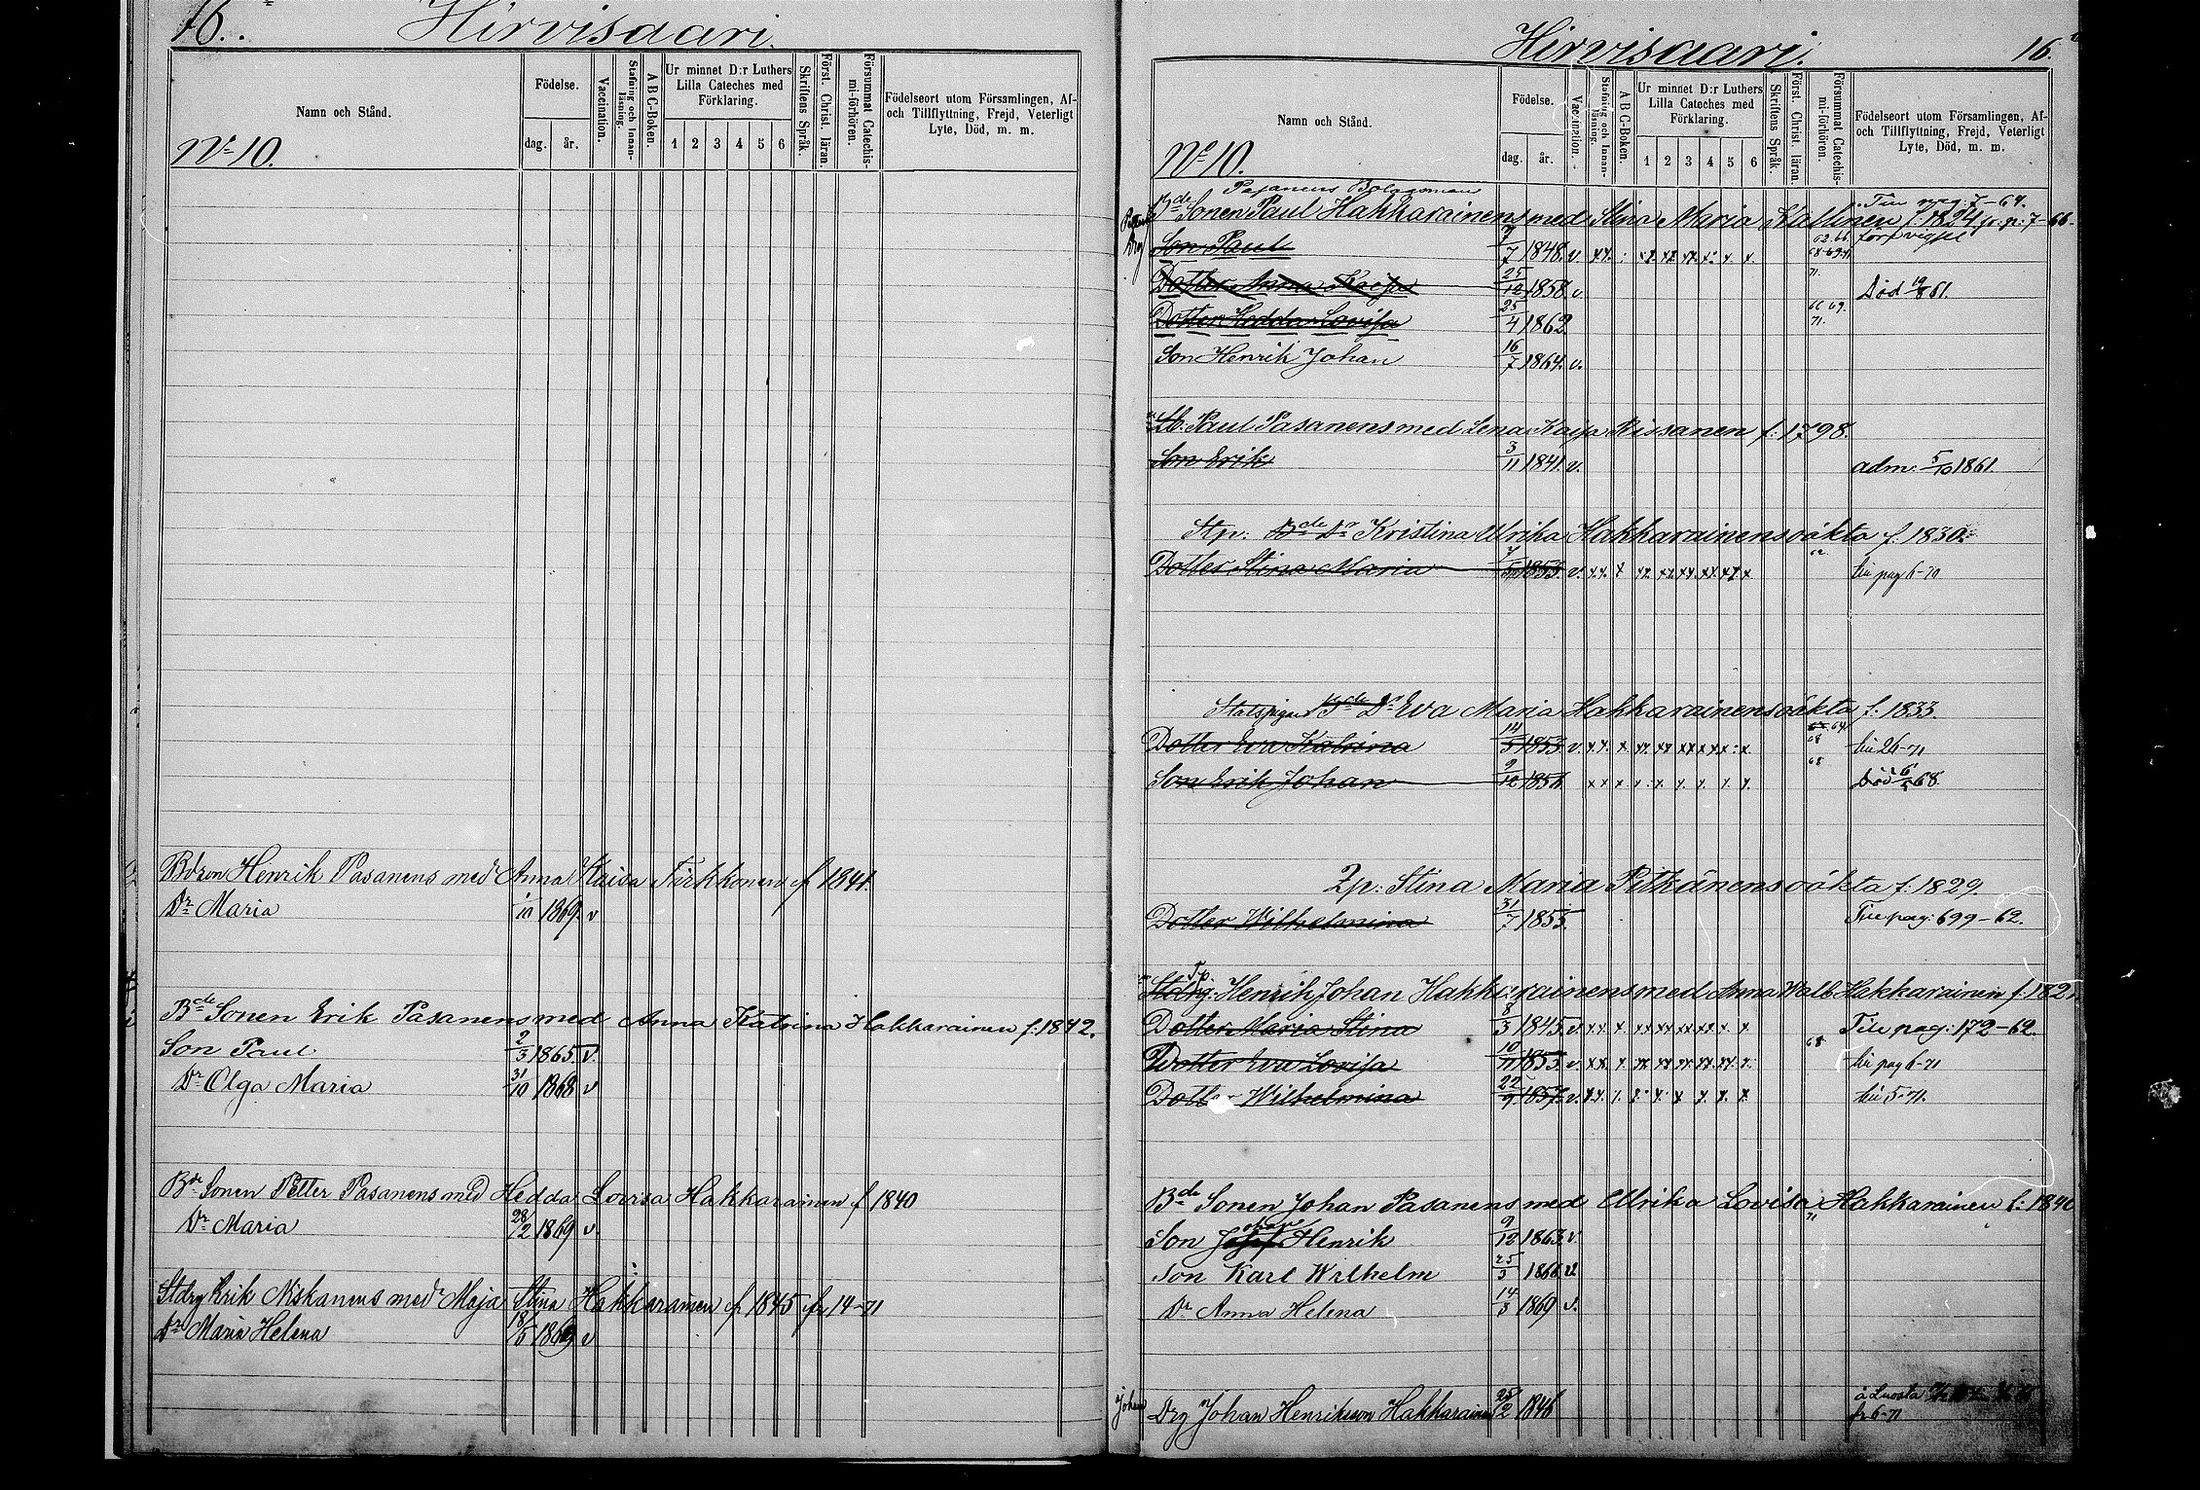 16.
Hirvisaari.
Namn och Stånd.
Födelse.
dag. år.
Vaccination.
Stafning och Innanläsning.
A B C-Boken.
Ur minnet D:r Luthers Lilla Cateches med Förklaring.
1 2 3 4 5 6
Skriftens Språk.
Först. Christ. läran.
Försummat Catechismi-förhören.
Födelseort utom Församlingen, Af- och Tillflyttning, Frejd, Veterligt Lyte, Död, m. m.
No 10.
Bdeson Henrik Pasanens med Anna Kaisa Törkkönen f. 1841.
Dr Maria /10 1869. v
Bde Sonen Erik Pasanens med Anna Katrina Hakkarainen f. 1842.
Son Paul 2/3 1865. v.
Dr Olga Maria 31/10 1868 v
Bde Sonen Petter Pasanens med Hedda Lovisa Hakkarainen f 1840
Dr Maria 28/2 1869 v.
Stdrg Erik Niskanens med Maja Stina Hakkarainen f 1845 fr 14-71
Dr Maria Helena 18/5 1869 v
Hirvisaari.
16.
Namn och Stånd.
Födelse.
dag. år.
Vaccination.
Stafning och Innanläsning.
A B C-Boken.
Ur minnet D:r Luthers Lilla Cateches med Förklaring.
1 2 3 4 5 6
Skriftens Språk.
Först. Christ. läran.
Försummat Catechismi-förhören.
Födelseort utom Församlingen, Af- och Tillflyttning, Frejd, Veterligt Lyte, Död, m. m.
No 10.
Pasanens Bolagsman
Till pag: 7-64.
Bde Sonen Paul Hakkarainens med Stina Maria Kallinen f. 1824 fr. p: 7-66.
Son Paul 7/7 1848. v.
Dotter Anna Kaisa 25/12 1858. v Död 19/8 61.
Dotter Hedda Lovisa 25/4 1862
Son Henrik Johan 16/7 1864. v.
Paul Pasanens med Lena Kajsa Rissanen f. 1798.
Son Erik 3/11 1841. v. adm: 5/10 1861.
Stp: Bde Dr Kristina Ulrika Hakkarainens oäkta f. 1830.
Dotter Stina Maria 1853. v. till pag 6-70
Statspigan Bde Dr Eva Maria Hakkarainens oäkta f. 1833.
Dotter Eva Katrina 14/5 1853 v till 26-71
Son Erik Johan 9/12 1856 Död 6/5 68.
Ip: Stina Maria Pitkänens oäkta f. 1829.
Dotter Wilhelmina 31/7 1855. Till pag: 699-62.
Tp.
Stdrg: Henrik Johan Hakkarainens med Anna Walb. Hakkarainen f. 182
Dotter Maria Stina 8/3 1845. v Till pag: 172-62.
Dotter Eva Lovisa 10/11 1853. v. till pag 6-71
Dotter Wilhelmina 22/9 1857. v. till 5-71.
Bde Sonen Johan Pasanens med Ulrika Lovisa Hakkarainen f. 1840
Son Johan Henrik 9/12 1863. v
Son Karl Wilhelm 25/3 1866. v.
Dr Anna Helena 14/3 1869 v.
Drg Johan Henriksson Hakkarainen 25/2 1846 å Luosta
fr 6-71